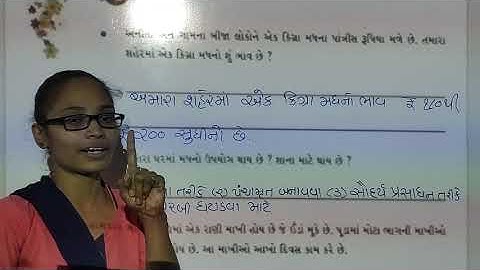 અને ગામના બીજા લોકોને એક કિગ્રા મધના પાંત્રીસ રૂપિયા મળે છે. તમારા
શહેરમાં એક કિગ્રા મધનો શું ભાવ છે ?
અમારા શહેરમાં એક કિગ્રા મધનો ભાવ રૂ ૧૮૦થી
૨૦૦ સુધીનો છે
ઘરમાં મધનો ઉપયોગ થાય છે ? શાના માટે થાય છે ?
તરીકે (૨) પંચામૃત બનાવવા (૩) સૌંદર્ય પ્રસાધન તરીકે
ઘટાડવા માટે
એક રાણી માખી હોય છે જે ઈંડાં મૂકે છે. પૂડામાં મોટા ભાગની માખીઓ
હોય છે. આ માખીઓ આખો દિવસ કામ કરે છે.